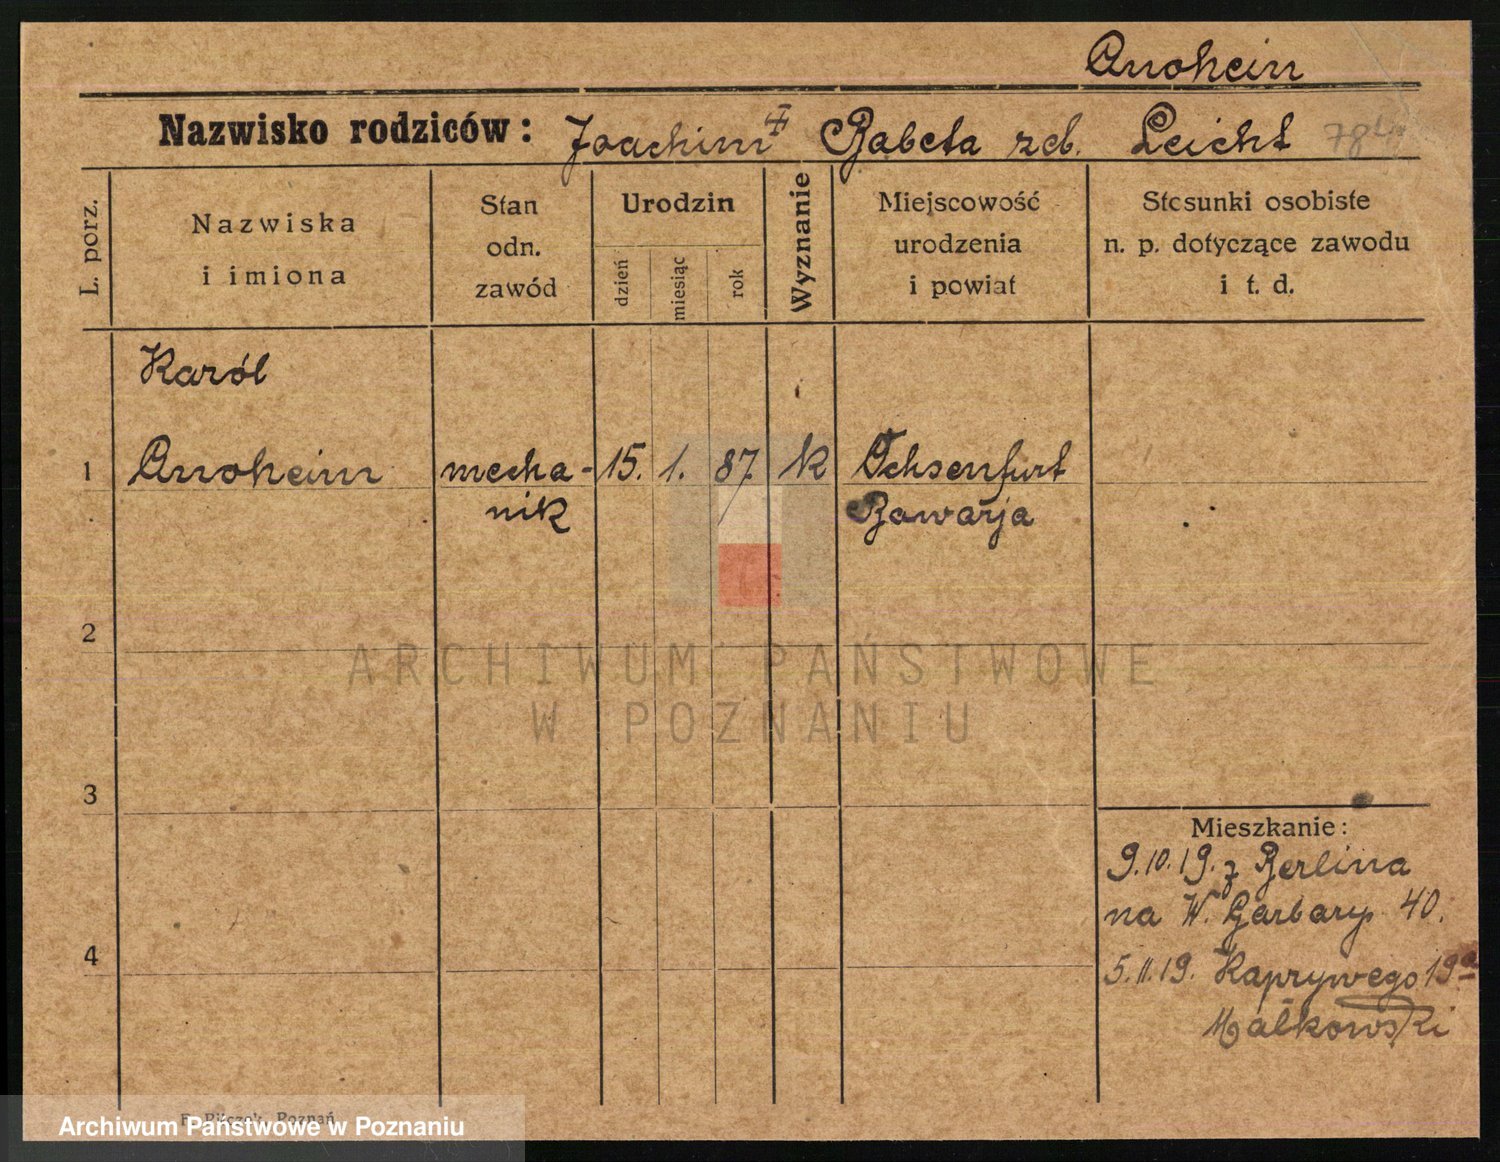 Anoheim
Nazwisko rodziców: Joachim Babeta zeb. Leicht
L. porz.
Nazwiska
i imiona
Stan
odn.
zawód
Urodzin
dzień
miesiąc
rok
Wyznanie
Miejscowość
urodzenia
i powiat
Stosunki osobiste
n. p. dotyczące zawodu
i t. d.
Karól
1 Anoheim mecha- 15. 1. 87 k Ochsenfurt
nik Bawarja
2
ARCHIWUM PAŃSTWOWE
W POZNANIU
3
Mieszkanie:
9.10.19. z Berlina
na W. Garbary 40.
4
5.11.19. Kaprywego 19a
Małkowski
F. Pilczek, Poznań
Archiwum Państwowe w Poznaniu